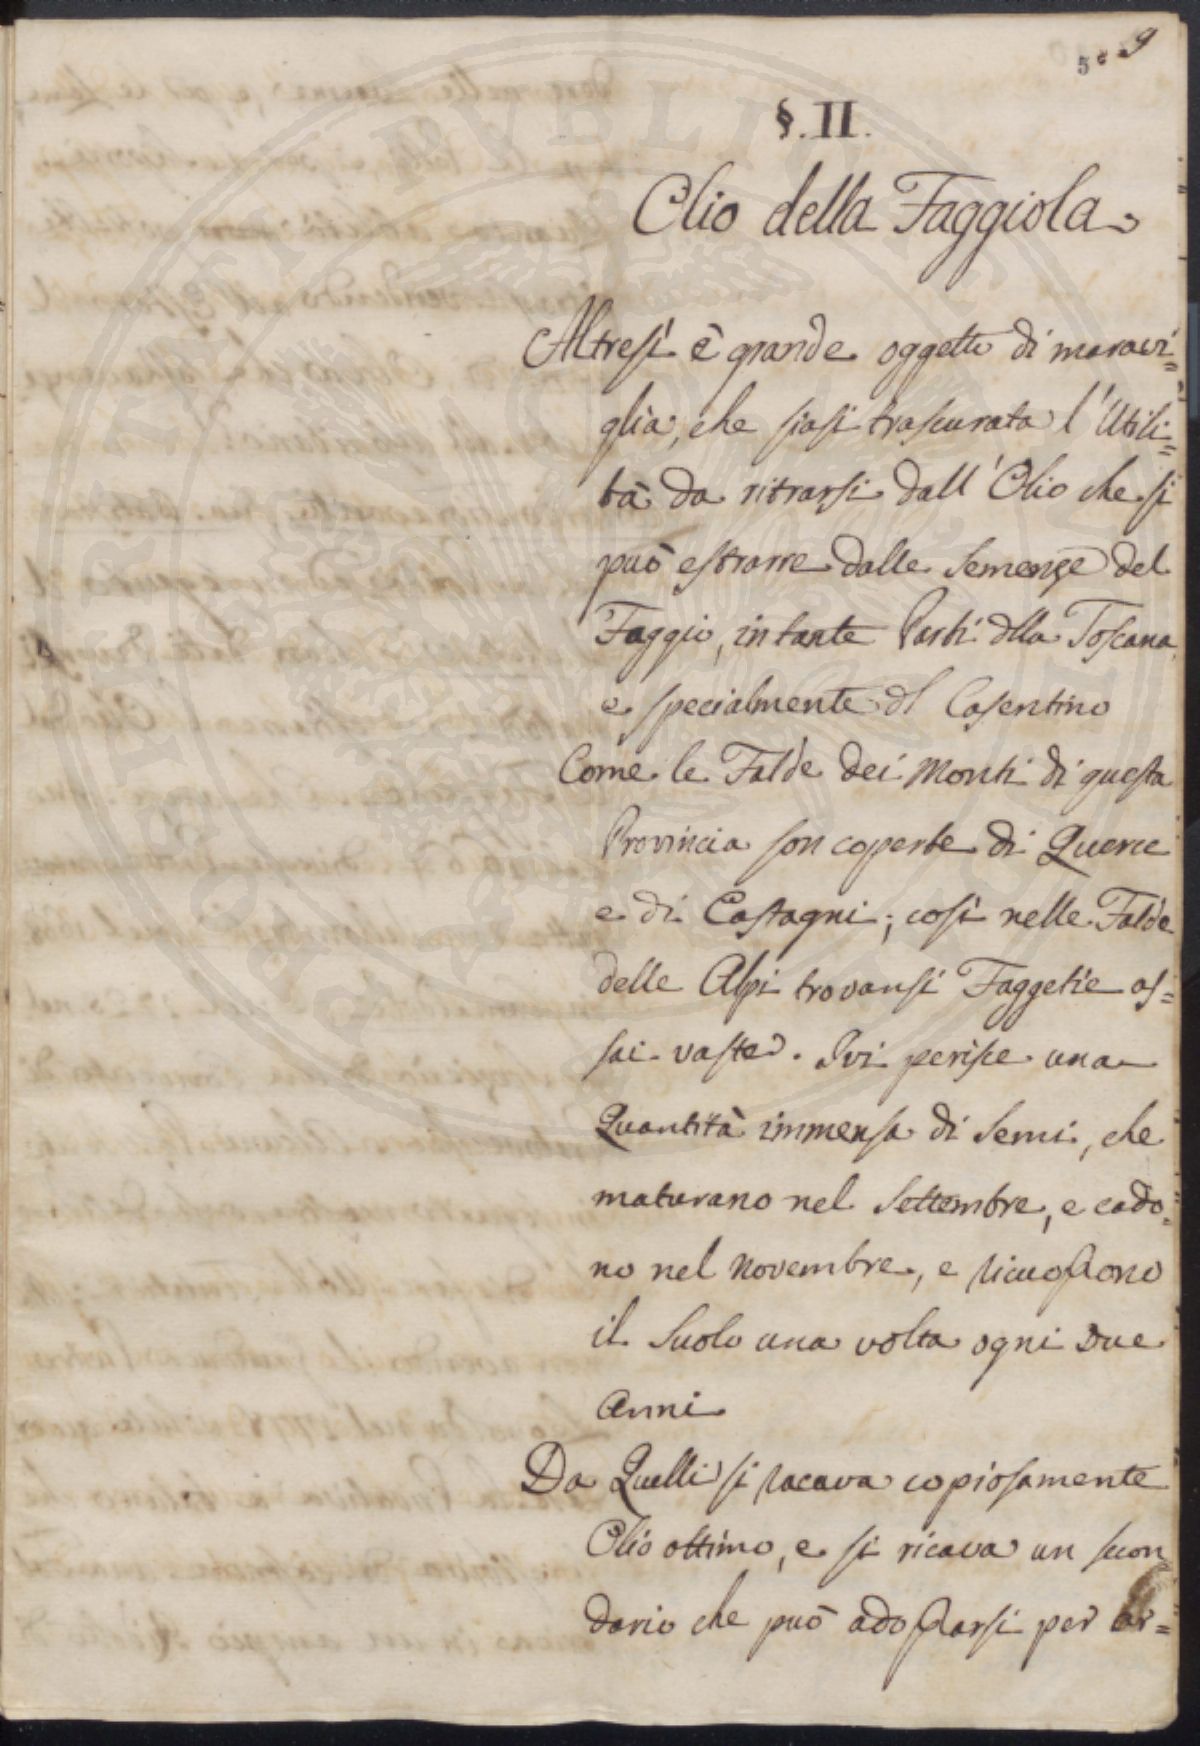 5 9
§. II.
Olio della Faggiola
Altresì è grande oggetto di maravi=
glia, che siasi trascurata l'Utili=
tà da ritrarsi dall'Olio che si
può estrarre dalle Semenze del
Faggio, in tante Parti dlla Toscana,
e specialmente dl Casentino
Come le Falde dei Monti di questa
Provincia son coperte di Querce
e di Castagni; così nelle Falde
delle Alpi trovansi Faggetie as=
sai vaste. Ivi perisce una
Quantità immensa di Semi, che
maturano nel Settembre, e cado=
no nel Novembre, e ricuoprono
il Suolo una volta ogni due
Anni
Da Quelli si cacava copiosamente
Olio ottimo, e si ricava un secon=
dario che può adoprarsi per ar=